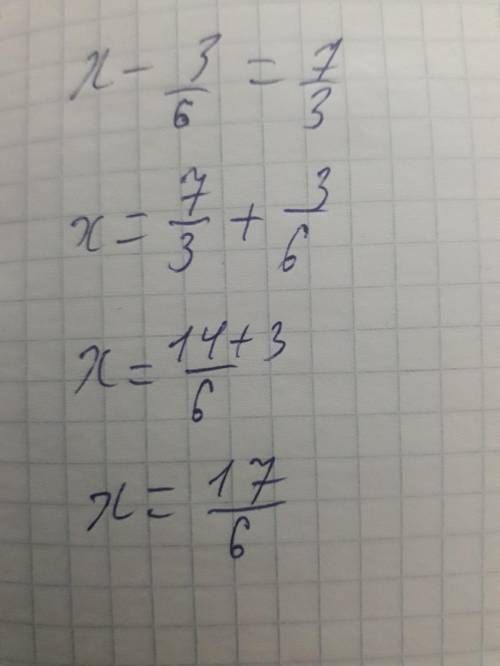 x - 3/6 = 7/3
x = 7/3 + 3/6
x = 14+3/6
x = 17/6